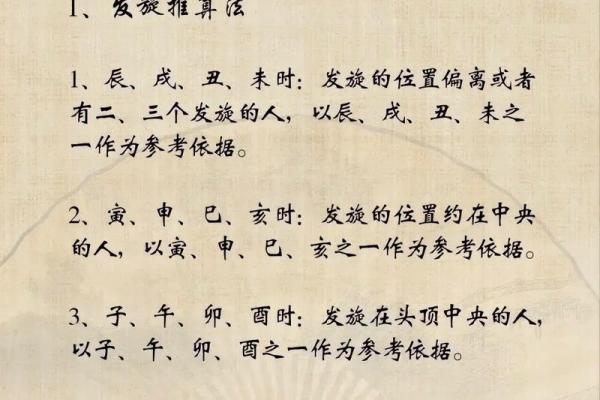 1、发旋推算法
1、辰、戌、丑、未时：发旋的位置偏离或者
有二、三个发旋的人，以辰、戌、丑、未之
一作为参考依据。
2、寅、申、巳、亥时：发旋的位置约在中央
的人，以寅、申、巳、亥之一作为参考依据。
3、子、午、卯、酉时：发旋在头顶中央的人，
以子、午、卯、酉之一作为参考依据。